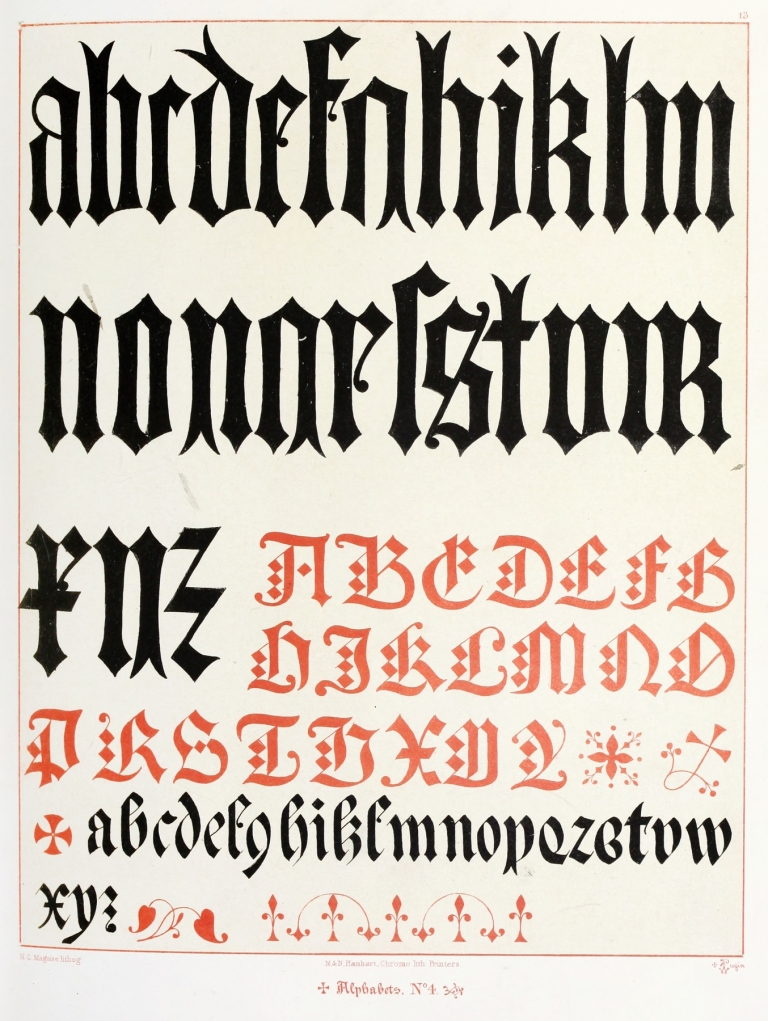 13
abcdefghiklm
nopqrſstvwx
xyz
ABCDEFG
HIKLMNO
PRSTUXVY
abcdefghiklmnopqrstvw
xyz
M & N. Hanhart, Chromo lith. Printers.
Alphabets. Nº 4